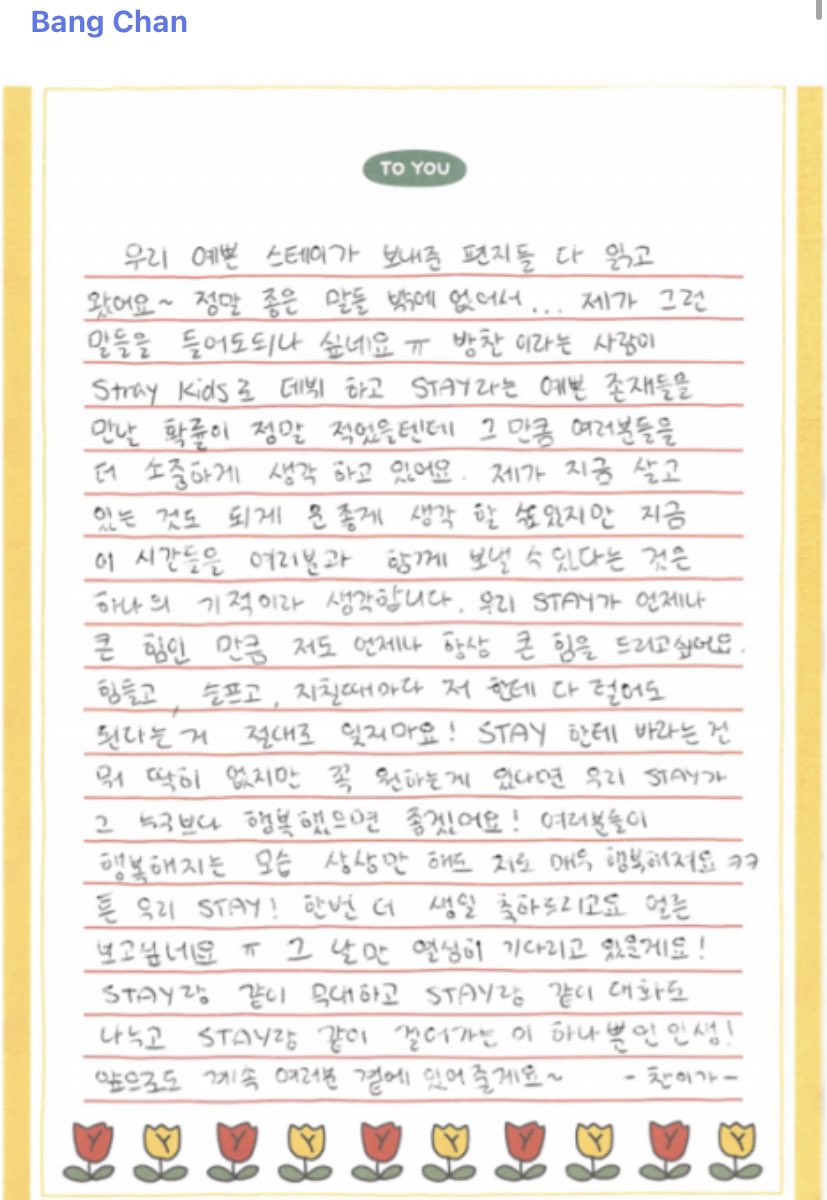 Bang Chan
TO YOU
우리 예쁜 스테이가 보내준 편지들 다 읽고
왔어요~ 정말 좋은 말들 밖에 없어서... 제가 그런
말들을 들어도되나 싶네요 ㅠ 방찬 이라는 사람이
Stray Kids로 데뷔 하고 STAY라는 예쁜 존재들을
만날 확률이 정말 적었을텐데 그 만큼 여러분들을
더 소중하게 생각 하고 있어요. 제가 지금 살고
있는 것도 되게 운좋게 생각 할 수있지만 지금
이 시간들을 여러분과 함께 보낼 수 있다는 것은
하나의 기적이라 생각합니다. 우리 STAY가 언제나
큰 힘인 만큼 저도 언제나 항상 큰 힘을 드리고싶어요.
힘들고, 슬프고, 지칠때마다 저 한테 다 털어도
된다는 거 절대로 잊지마요! STAY 한테 바라는 건
뭐 딱히 없지만 꼭 원하는게 있다면 우리 STAY가
그 누구보다 행복했으면 좋겠어요! 여러분들이
행복해지는 모습 상상만 해도 저도 매우 행복해져요 ㅋㅋ
튼 우리 STAY! 한번 더 생일 축하드리고요 얼른
보고싶네요 ㅠ 그 날만 열심히 기다리고 있을게요!
STAY랑 같이 무대하고 STAY랑 같이 대화도
나누고 STAY랑 같이 걸어가는 이 하나뿐인 인생!
앞으로도 계속 여러분 곁에 있어줄게요~ -찬이가-